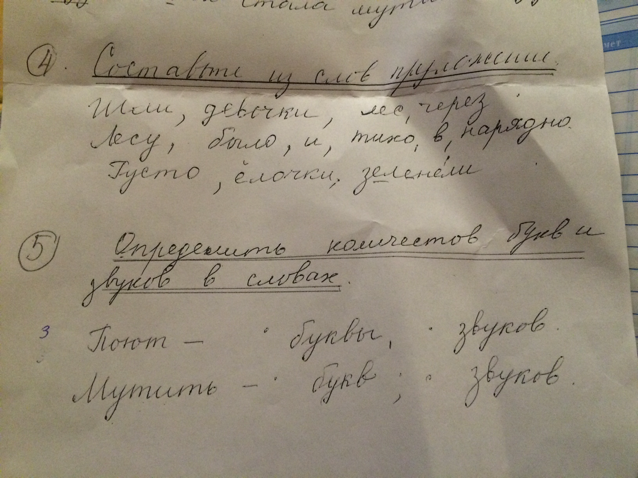 стала мути
4. Составьте из слов предложение.
Шли, девочки, лес, через
Лесу, было, и, тихо, в, нарядно.
Густо, ёлочки, зеленели
5 Определить количестов букв и
звуков в словах.
3 Поют – буквы, звуков.
Мутить – букв; звуков.